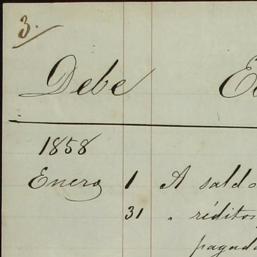 3.
Debe
1858
Enero 1 A saldo
31 " réditos
pagad